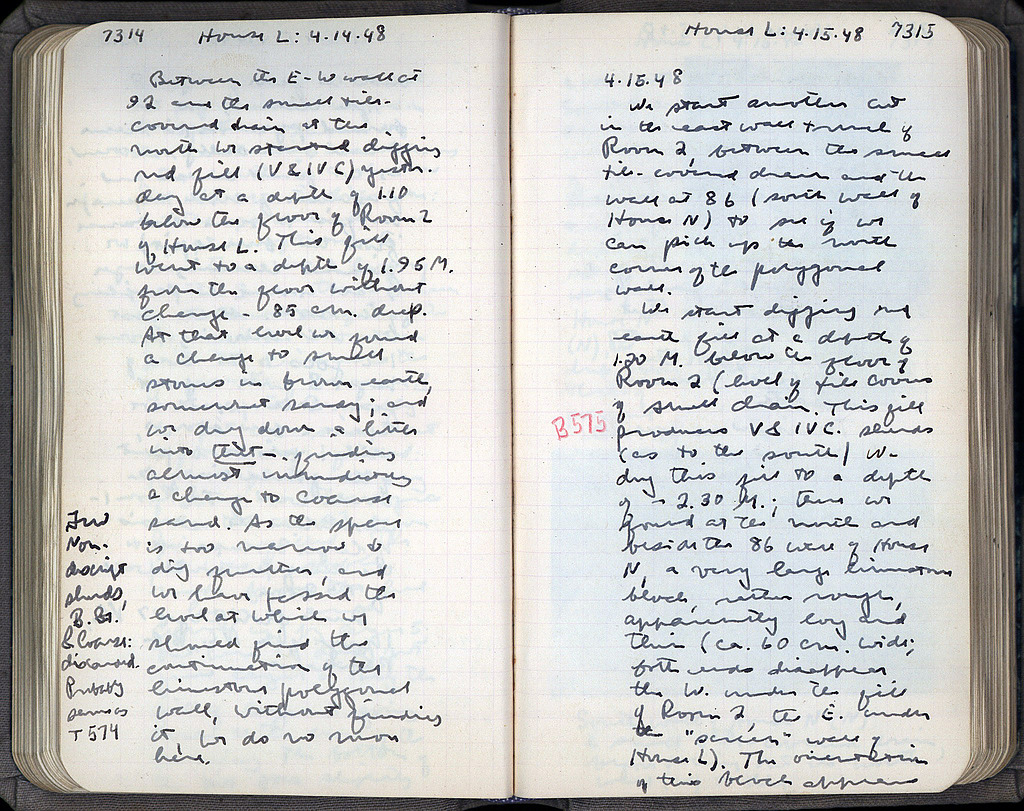 7314 House L: 4.14.48
Between the E-W wall at
92 and the small tile-
covered drain at the
north we started digging
red fill (V & IV C) yester-
day at a depth of 1.10
below the floor of Room 2
of House L. This fill
went to a depth of 1.95 M.
from the floor without
change - 85 cm. deep.
At that level we found
a change to small
stones in brown earth,
somewhat sandy; and
we dug down a little
into that - finding
almost immediately
a change to coarse
sand. As the space
is too narrow to
dig further, and
we have passed the
level at which we
should find the
continuation of the
limestone polygonal
wall, without finding
it, we do no more
here.
Few
Non-
descript
sherds,
B. Gl.
& Coarse:
discarded.
Probably
same as
T 574
House L: 4.15.48 7315
4.15.48
We start another cut
in the east wall tunnel of
Room 2, between the small
tile-covered drain and the
wall at 86 (south wall of
House N) to see if we
can pick up the north
corner of the polygonal
wall.
We start digging red
earth fill at a depth of
1.20 M. below the floor of
Room 2 (level of tile covers
of small drain. This fill
B 575
produces V & IV C. sherds
(as to the south) We
dug this fill to a depth
of - 2.30 M.; then we
found at the north and
beside the 86 wall of House
N, a very large limestone
block, rather rough,
apparently long and
thin (ca. 60 cm. wide;
both ends disappear
the W. under the fill
of Room 2, the E. under
the "screen" wall of
House L). The orientation
of this block appears